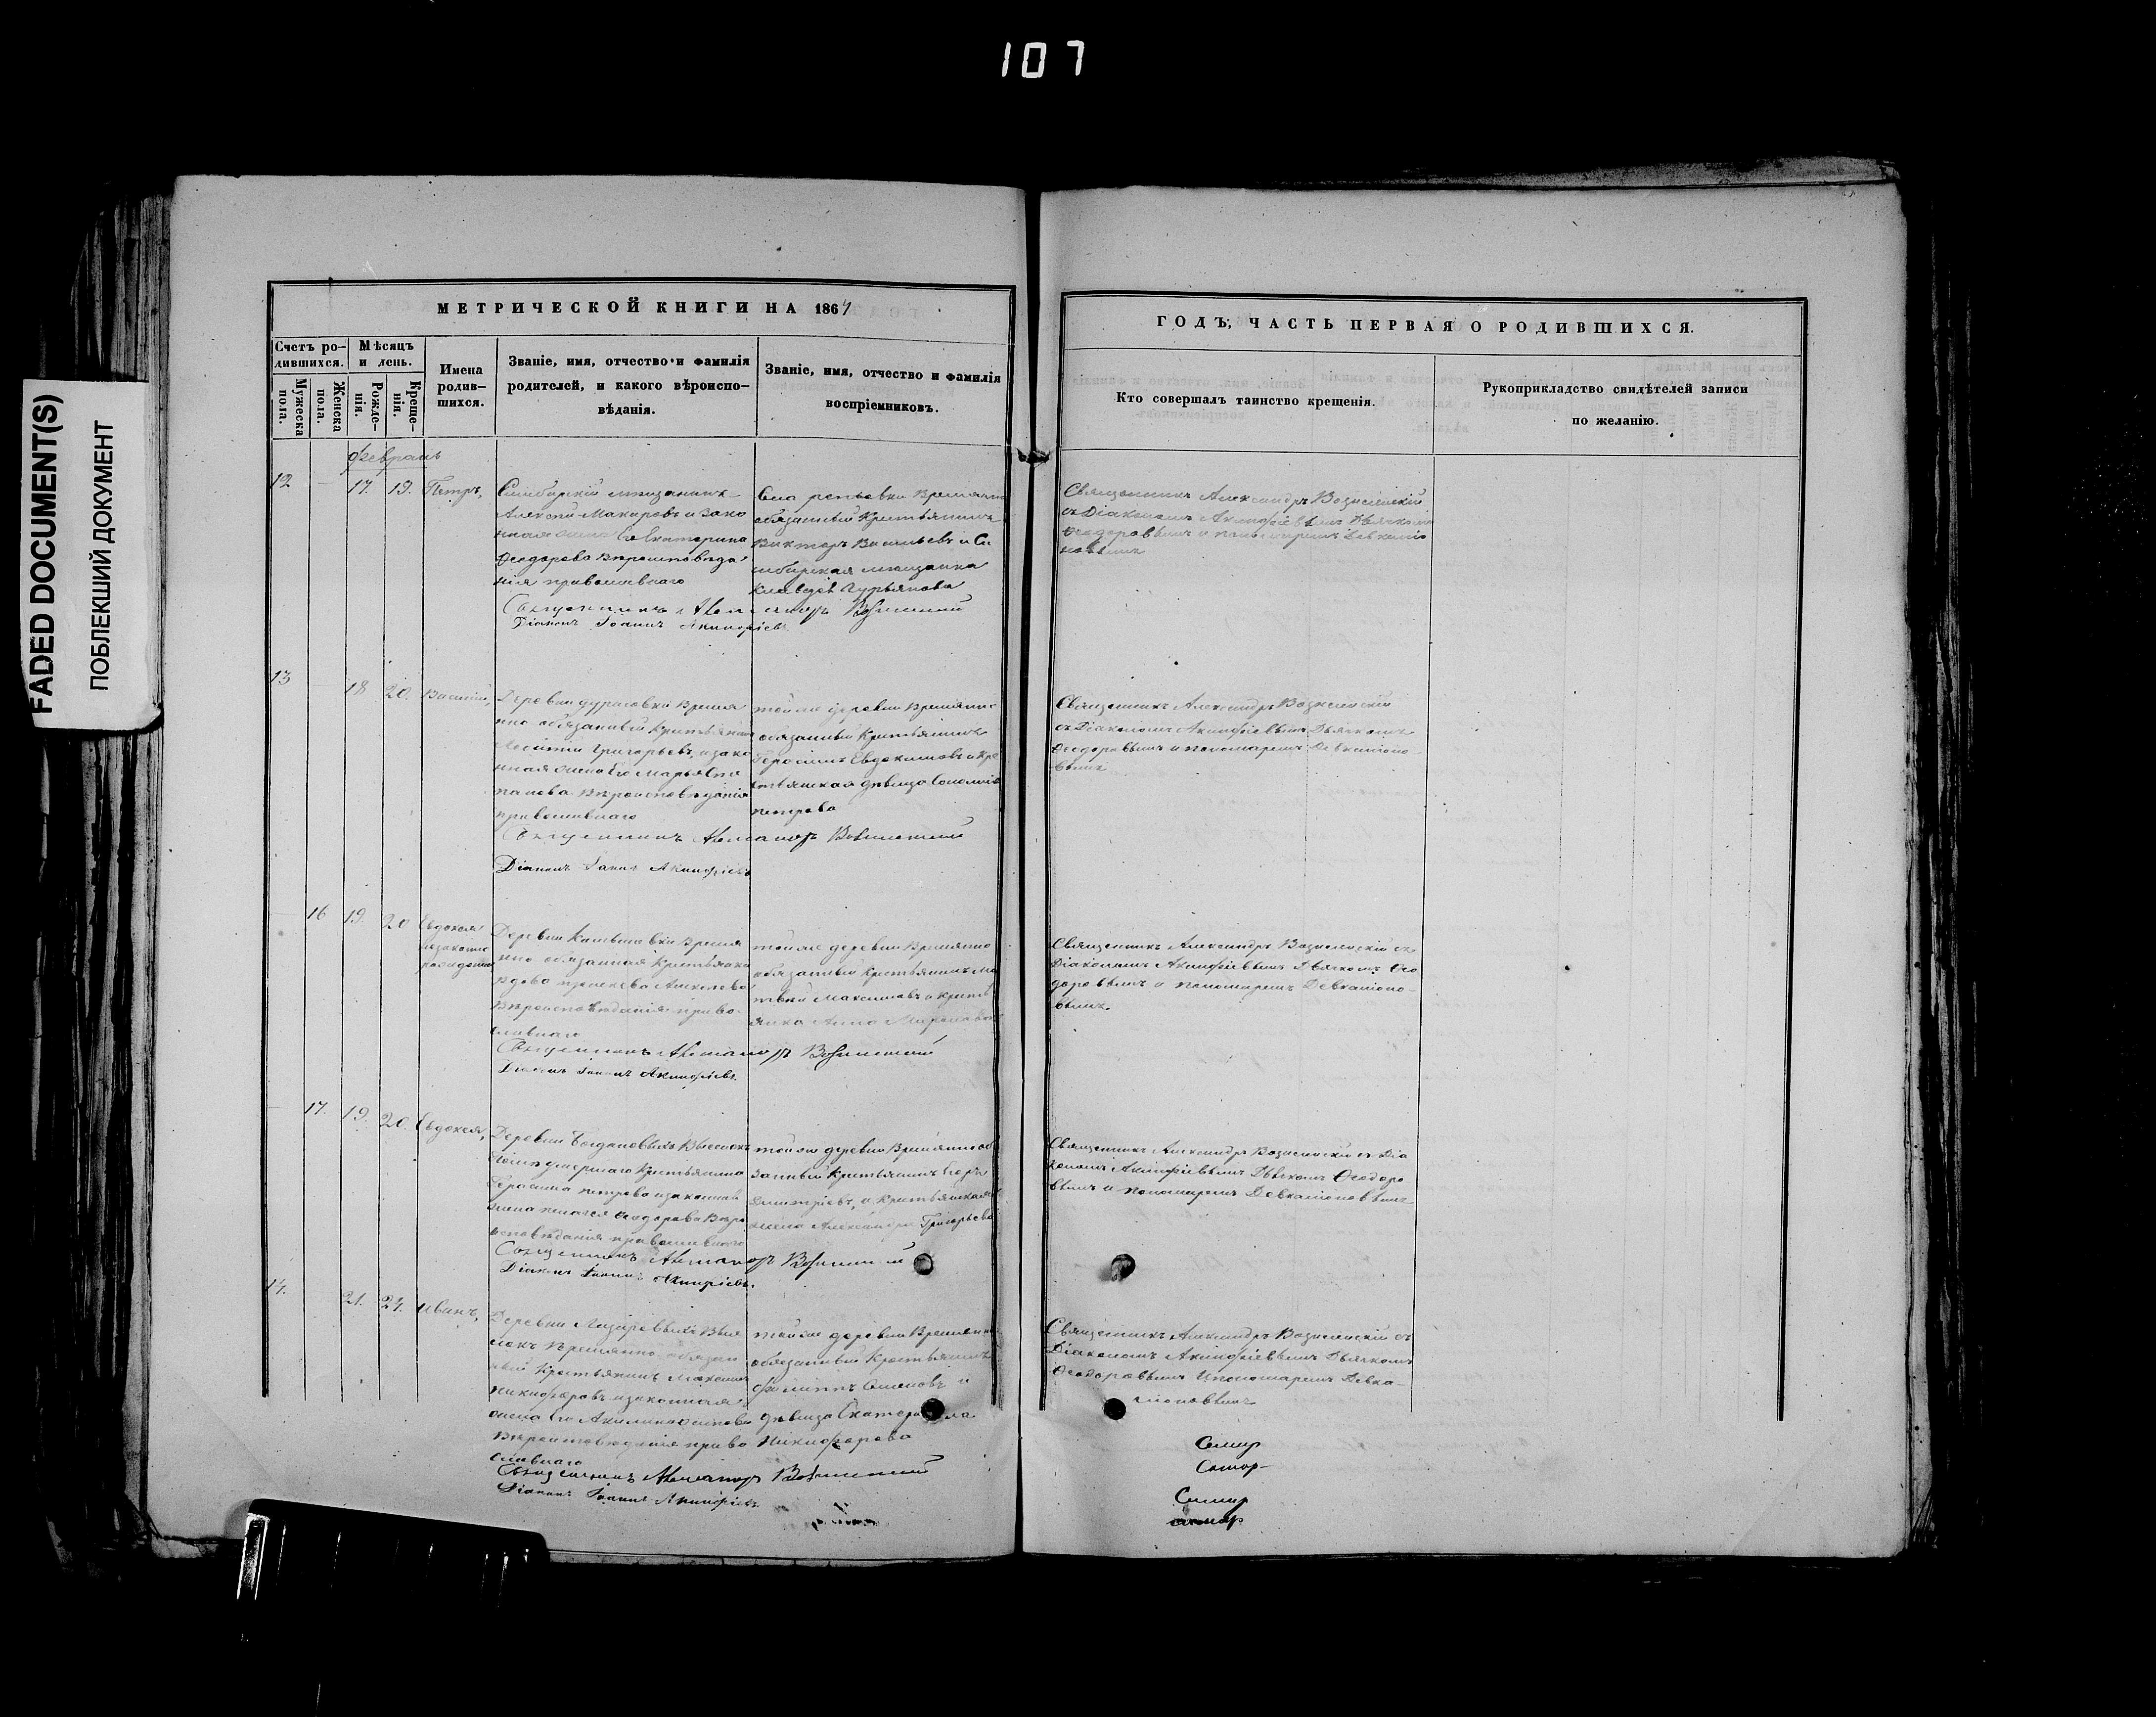 107
FADED DOCUMENT(S)
ПОБЛЕКШИЙ ДОКУМЕНТ
МЕТРИЧЕСКОЙ КНИГИ НА 1864
Счетъ ро-
дившихся.
Мѣсяцъ
и день.
Мужеска
пола.
Женска
пола.
Рожде-
нія.
Креще-
нія.
Имена
родив-
шихся.
Званіе, имя, отчество и фамилія
родителей, и какого вѣроиспо-
вѣданія.
Званіе, имя, отчество и фамилія
воспріемниковъ.
февраль
12 17. 19. Петръ,
Симбирскій мещанинъ
Алексѣй Макаровъ и зако
нная жена Его Екатерина
Феодорова Вѣроисповѣда
нія православнаго
обязанный Крестьянинъ
Викторъ Васильевъ и Си
мбирская мещанка
Гурьянова
Священникъ Александръ Вознесенскій
Діаконъ Іоаннъ Акинфіевъ
13 18 20. Василій,
Деревни Дурасовки Времен
но обязанный Крестьянинъ
Григорьевъ и зако
нная жена Его Марья Сте
панова Вѣроисповѣданія
православнаго
той же деревни Временно
обязанный Крестьянинъ
Герасимъ Евдокимовъ и Кре
стьянская дѣвица
Петрова
Священникъ Александръ Вознесенскій
Діаконъ Іоаннъ Акинфіевъ
16 19 20 Евдокея
незаконно
рожденная
Деревни Времен
но обязанная Крестьянка
вдова Алексѣева
Вѣроисповѣданія право
славнаго
той же деревни Временно
обязанный Крестьянинъ Ма
твей Максимовъ и Кресть
янка Анна
Священникъ Александръ Вознесенскій
Діаконъ Іоаннъ Акинфіевъ
17. 19. 20. Евдокея,
Деревни Богдановыхъ Выселокъ
умершаго Крестьянина
Герасима Петрова и законная
жена Феодорова Вѣро
исповѣданія православнаго
той же деревни Временно обя
занный Крестьянинъ
Дмитріевъ, и Крестьянская
жена Александра Григорьева
Священникъ Александръ Вознесенскій
Діаконъ Іоаннъ Акинфіевъ.
14. 21. 24. Иванъ,
Деревни Лазаревыхъ Высе
локъ Временно обязан
ный Крестьянинъ Максимъ
Никифоровъ и законная
жена Его Акилина Осипова
Вѣроисповѣданія право
славнаго
той же деревни Временно
обязанный Крестьянинъ
Филиппъ Семеновъ и
дѣвица Екатерина
Никифорова
Священникъ Александръ Вознесенскій
Діаконъ Іоаннъ Акинфіевъ
ГОДЪ, ЧАСТЬ ПЕРВАЯ О РОДИВШИХСЯ.
Кто совершалъ таинство крещенія.
Рукоприкладство свидѣтелей записи
по желанію.
Священникъ Александръ Вознесенскій
съ Діакономъ Акинфіевымъ Дьячкомъ
Феодоровымъ и пономаремъ Девкаліо
новымъ
Священникъ Александръ Вознесенскій
съ Діакономъ Акинфіевымъ Дьячкомъ
Феодоровымъ и пономаремъ Девкаліоно-
вымъ
Священникъ Александръ Вознесенскій съ
Діакономъ Акинфіевымъ Дьячкомъ Фео
доровымъ и пономаремъ Девкаліоно-
вымъ.
Священникъ Александръ Вознесенскій съ Діа
кономъ Акинфіевымъ Дьячкомъ Феодоро
вымъ и пономаремъ Девкаліоновымъ
Священникъ Александръ Вознесенскій съ
Діакономъ Акинфіевымъ Дьячкомъ
Феодоровымъ и пономаремъ Девка-
ліоновымъ